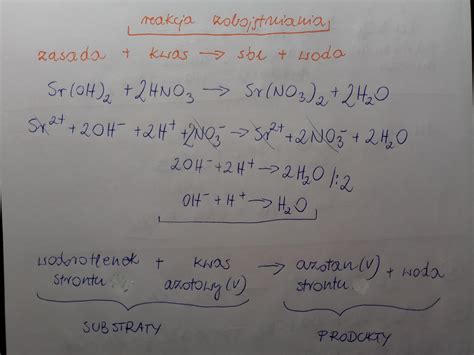 reakcja zobojętniania
zasada + kwas → sól + woda
Sr(OH)₂ + 2HNO₃ → Sr(NO₃)₂ + 2H₂O
Sr²⁺ + 2OH⁻ + 2H⁺ + 2NO₃⁻ → Sr²⁺ + 2NO₃⁻ + 2H₂O
2OH⁻ + 2H⁺ → 2H₂O /:2
OH⁻ + H⁺ → H₂O
wodorotlenek + kwas → azotan(V) + woda
strontu azotowy(V) strontu
SUBSTRATY PRODUKTY